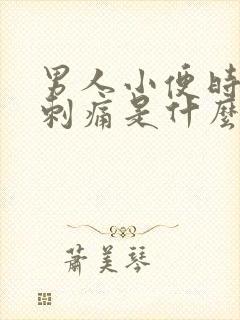 男人小便時
刺痛是什麼
蕭美琴